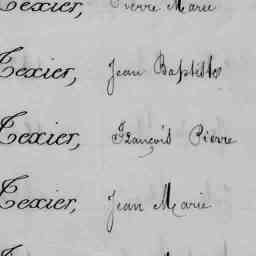 Texier, Pierre Marie
Texier, Jean Baptiste
Texier, François Pierre
Texier, Jean Marie